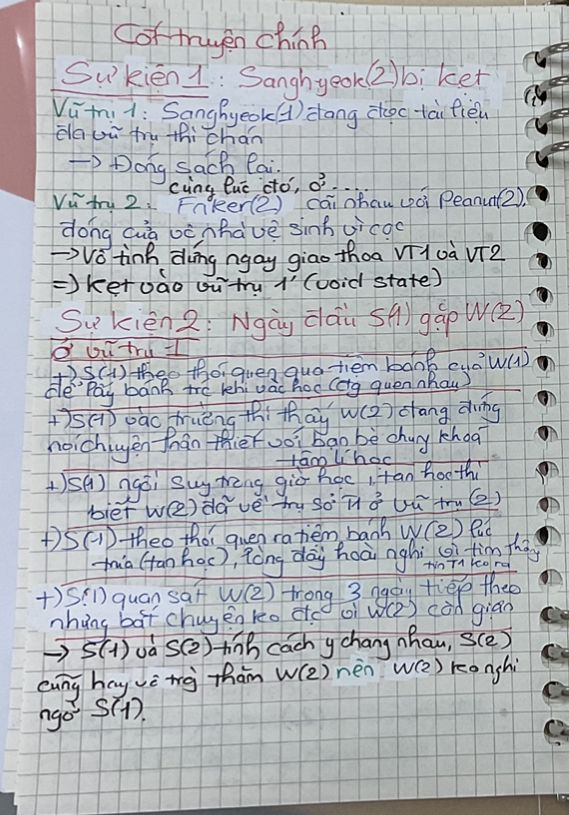 Cốt truyện chính
Sự kiện 1: Sanghyeok(2) bị kẹt
Vũ trụ 1: Sanghyeok(1) đang đọc tài liệu
đa vũ trụ thì chán
→ Đóng sách lại.
cùng lúc đó, ở....
Vũ trụ 2: Faker(2) cãi nhau với Peanut(2).
đóng cửa về nhà vệ sinh
→ Vô tình đứng ngay giao thoa VT1 và VT2
=) kẹt vào vũ trụ 1' (void state)
Sự kiện 2: Ngày đầu S(1) gặp W(2)
Ở vũ trụ 1
+) S(1) theo thói quen qua tiệm bánh của W(1)
để lấy bánh trc khi vào học (ctg quen nhau)
+) S(1) vào trường thì thấy W(2) đang đứng
nói chuyện thân thiết với bạn bè chung khoa
tâm lí học
+) S(1) ngồi suy trong giờ học, tan học thì
biết W(2) đã về trụ sở T1 ở vũ trụ (2)
+) S(1) theo thói quen ra tiệm bánh W(2) lúc
trưa (tan học), lòng đầy hoài nghi vì tìm thấy
tin T1 ko ra
+) S(1) quan sát W(2) trong 3 ngày tiếp theo
nhưng bắt chuyện ko đc vì W(2) còn giận
→ S(1) và S(2) tính cách y chang nhau, S(2)
cũng hay về trg thăm W(2) nên W(2) ko nghi
ngờ S(1).